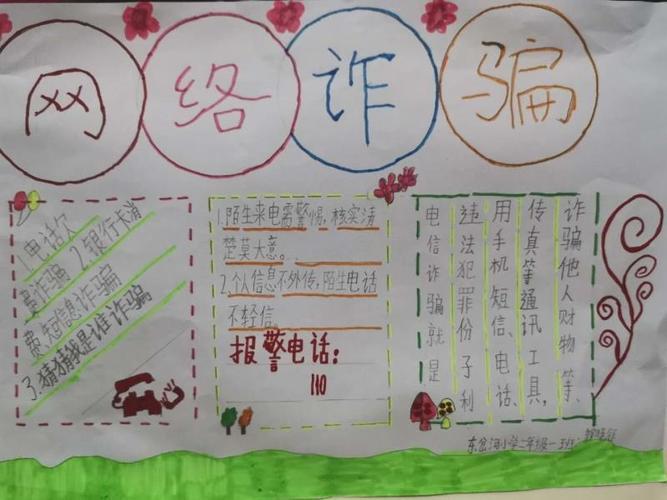 网络诈骗
1.电话欠
费诈骗 2.银行卡消
费,短信息诈骗
3.猜猜我是谁诈骗
1.陌生来电需警惕,核实清
楚莫大意。
2.个人信息不外传,陌生电话
不轻信。
报警电话:
110
电信诈骗就是
违法犯罪份子利
用手机短信、电话、
传真等通讯工具,
诈骗他人财物等、
东岔河小学二年级一班: